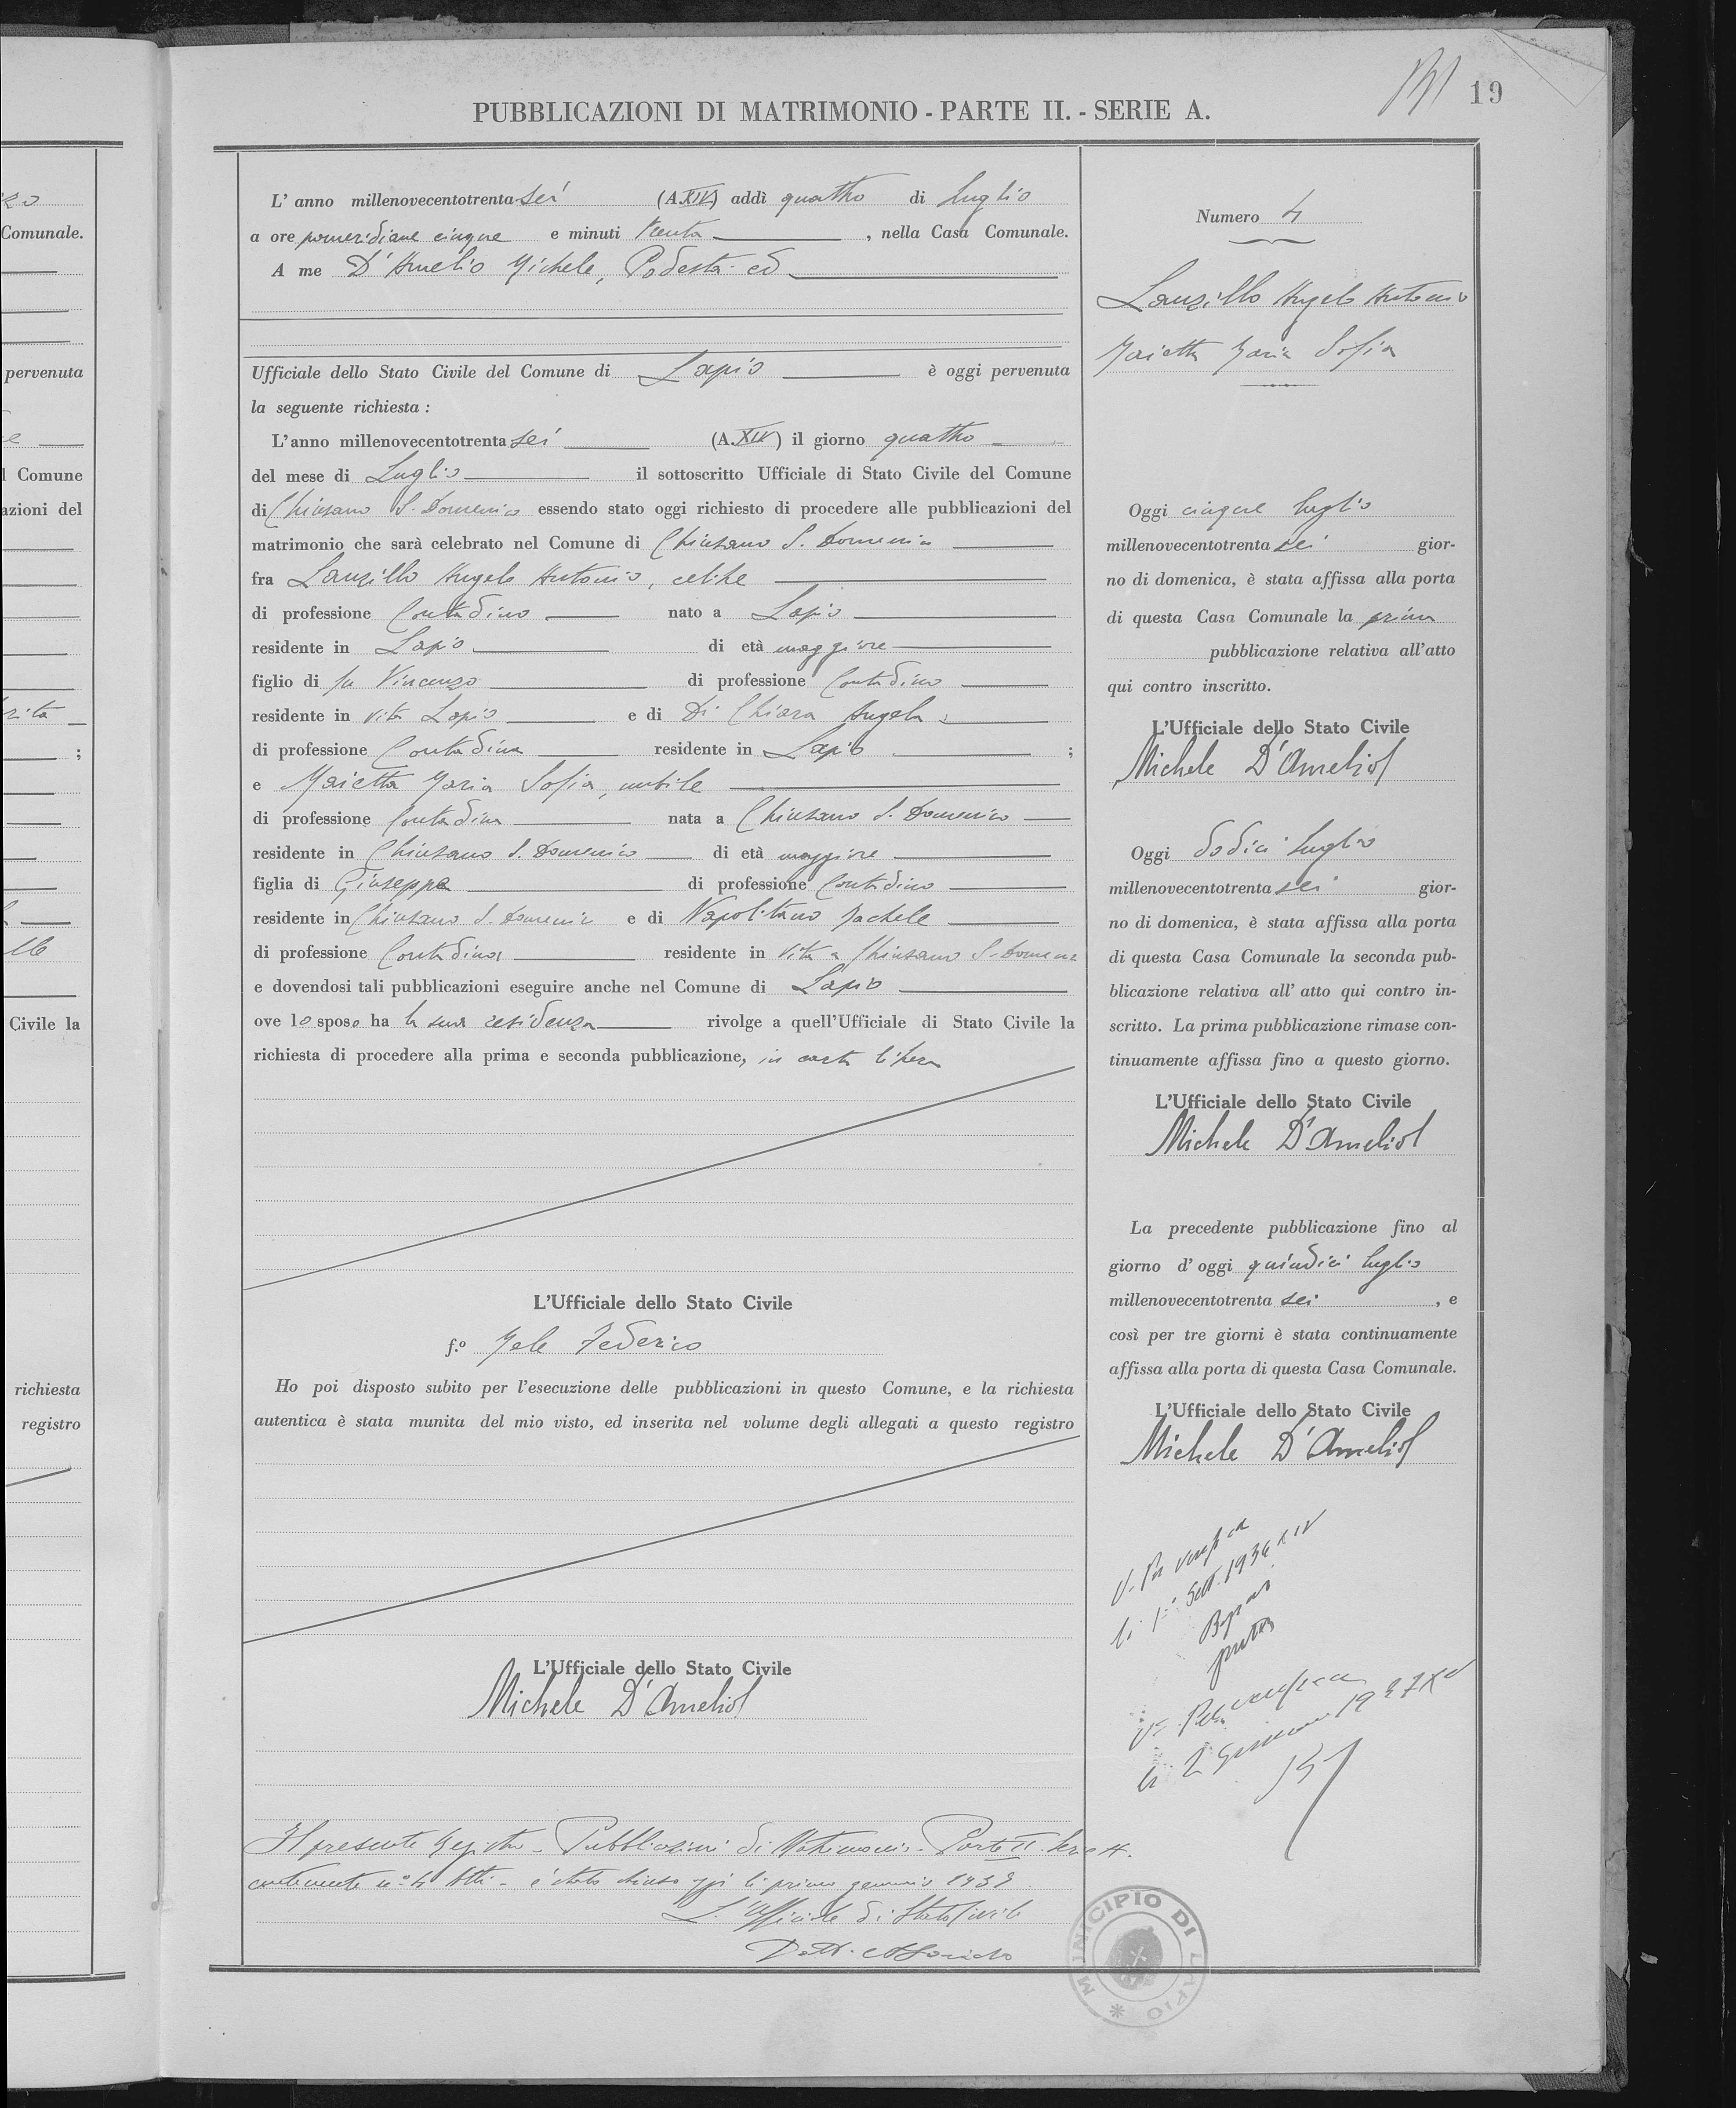 19
PUBBLICAZIONI DI MATRIMONIO - PARTE II. - SERIE A.
L' anno millenovecentotrenta sei (A. XIV) addì quattro di Luglio
a ore pomeridiane cinque e minuti trenta , nella Casa Comunale.
A me D'Amelio Michele, Podestà ed
Ufficiale dello Stato Civile del Comune di Lapio è oggi pervenuta
la seguente richiesta :
L'anno millenovecentotrenta sei (A. XIV) il giorno quattro
del mese di Luglio il sottoscritto Ufficiale di Stato Civile del Comune
di Chiusano S. Domenico essendo stato oggi richiesto di procedere alle pubblicazioni del
matrimonio che sarà celebrato nel Comune di Chiusano S. Domenico
fra Lanzillo Angelo Antonio, celibe
di professione Contadino nato a Lapio
residente in Lapio di età maggiore
figlio di fu Vincenzo di professione Contadino
residente in vita Lapio e di Di Chiara Angela
di professione Contadina residente in Lapio ;
e Maietta Maria Sofia, nubile
di professione Contadina nata a Chiusano S. Domenico
residente in Chiusano S. Domenico di età maggiore
figlia di Giuseppe di professione Contadino
residente in Chiusano S. Domenico e di Napolitano Rachele
di professione Contadina residente in vita a Chiusano S. Domenico
e dovendosi tali pubblicazioni eseguire anche nel Comune di Lapio
ove lo sposo ha la sua residenza rivolge a quell'Ufficiale di Stato Civile la
richiesta di procedere alla prima e seconda pubblicazione, in carta libera
L'Ufficiale dello Stato Civile
f.º Mele Federico
Ho poi disposto subito per l'esecuzione delle pubblicazioni in questo Comune, e la richiesta
autentica è stata munita del mio visto, ed inserita nel volume degli allegati a questo registro
L'Ufficiale dello Stato Civile
Michele D'Amelio
Il presente Registro - Pubblicazioni di Matrimonio - Parte II Serie A.
contenente n° 4 Atti - è stato chiuso oggi li primo gennaio
L'Ufficiale di Stato Civile
Dott.
Numero 4
Lanzillo Angelo Antonio
Maietta Maria Sofia
Oggi cinque luglio
millenovecentotrenta sei gior-
no di domenica, è stata affissa alla porta
di questa Casa Comunale la prima
pubblicazione relativa all'atto
qui contro inscritto.
L'Ufficiale dello Stato Civile
Michele D'Amelio
Oggi dodici luglio
millenovecentotrenta sei gior-
no di domenica, è stata affissa alla porta
di questa Casa Comunale la seconda pub-
blicazione relativa all' atto qui contro in-
scritto. La prima pubblicazione rimase con-
tinuamente affissa fino a questo giorno.
L'Ufficiale dello Stato Civile
Michele D'Amelio
La precedente pubblicazione fino al
giorno d' oggi quindici luglio
millenovecentotrenta sei , e
così per tre giorni è stata continuamente
affissa alla porta di questa Casa Comunale.
L'Ufficiale dello Stato Civile
Michele D'Amelio
V. Per verifica
li 1° Sett. 1936 XIV
V. Per verifica
li 2 1937 XV
MUNICIPIO DI LAPIO
zo
Comunale.
pervenuta
l Comune
azioni del
;
Civile la
richiesta
registro